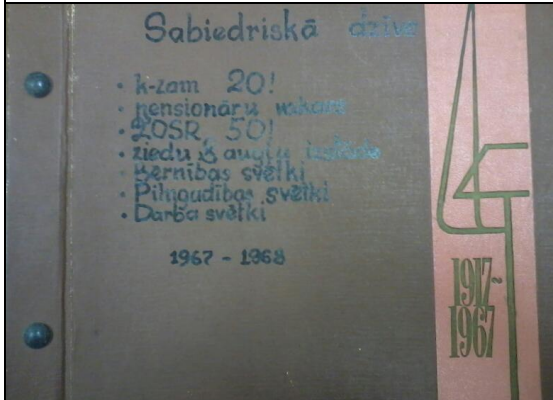 Sabiedriskā dzīve
• k-zam 20!
• pensionāru vakars
• LOSR 50!
• ziedu & augļu izstāde
• Bērnības svētki
• Pilngadības svētki
• Darba svētki
1967 - 1968
1917-
1967